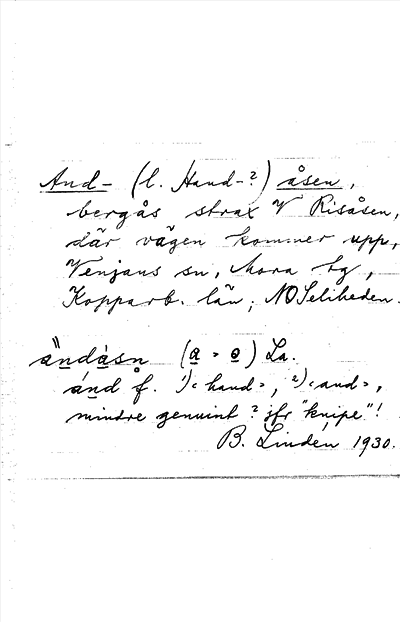 And- (l. Hand-?) åsen,
bergås strax V Risåsen,
där vägen kommer upp,
Venjans sn, Mora tg,
Kopparb. län; NO Seliheden.
ändåsn (a = o) La.
ánd f. 1) < hand >, 2) < and >,
mindre genuint? jfr "knipe"!
B. Lindén, 1930.